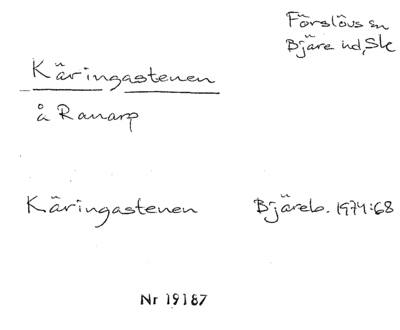 Förslövs sn
Bjäre hd, Sk
Käringastenen
å Ranarp
Käringastenen Bjäreb. 1974:68
Nr 19187